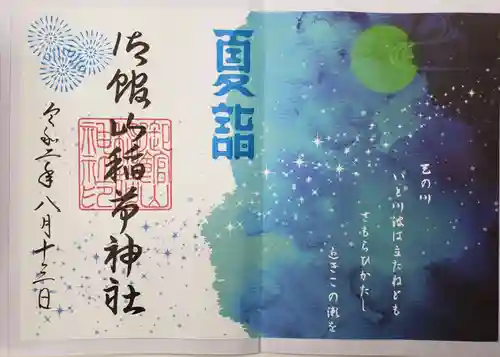 天の川
いと川波は立たねども
さもらひかたし
近きこの瀬を
夏詣
御館山稲荷神社
令和二年八月十三日